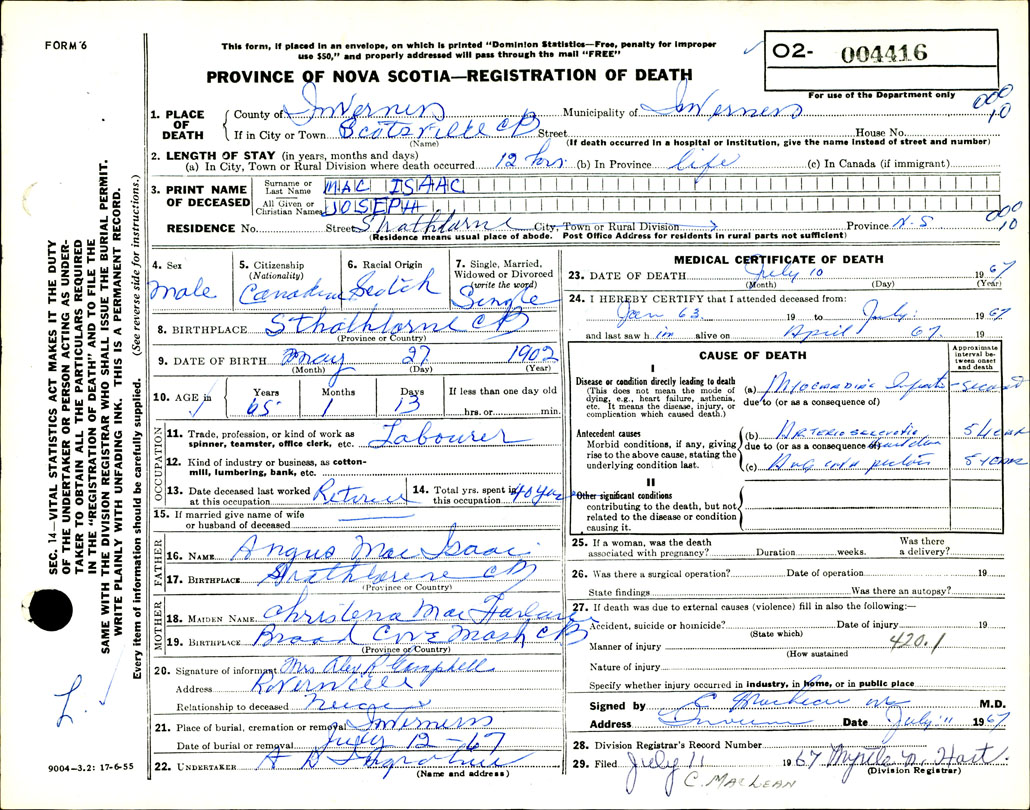 FORM 6
This form, if placed in an envelope, on which is printed "Dominion Statistics—Free, penalty for improper
use $50," and properly addressed will pass through the mail "FREE"
PROVINCE OF NOVA SCOTIA—REGISTRATION OF DEATH
O2- 004416
For use of the Department only
1. PLACE OF DEATH
County of Inverness Municipality of Inverness
If in City or Town Scotsville CB Street House No.
(Name) (If death occurred in a hospital or institution, give the name instead of street and number)
2. LENGTH OF STAY (in years, months and days)
(a) In City, Town or Rural Division where death occurred 12 hrs. (b) In Province life (c) In Canada (if immigrant)
3. PRINT NAME OF DECEASED
Surname or Last Name MAC ISAAC
All Given or Christian Names JOSEPH
RESIDENCE No. Street Strathlorne City, Town or Rural Division Province N-S
(Residence means usual place of abode. Post Office Address for residents in rural parts not sufficient)
4. Sex
Male
5. Citizenship
(Nationality)
Canadian
6. Racial Origin
Scotch
7. Single, Married,
Widowed or Divorced
(write the word)
Single
8. BIRTHPLACE Strathlorne CB
(Province or Country)
9. DATE OF BIRTH May 27 1902
(Month) (Day) (Year)
10. AGE in Years Months Days If less than one day old
65 1 13 hrs. or min.
OCCUPATION
11. Trade, profession, or kind of work as
spinner, teamster, office clerk, etc. Labourer
12. Kind of industry or business, as cotton-
mill, lumbering, bank, etc.
13. Date deceased last worked
at this occupation Retired
14. Total yrs. spent in
this occupation 40 years
15. If married give name of wife
or husband of deceased
FATHER
16. NAME Angus Mac Isaac
17. BIRTHPLACE Strathlorne CB
(Province or Country)
MOTHER
18. MAIDEN NAME Christena Mac Farlane
19. BIRTHPLACE Broad Cove Marsh CB
(Province or Country)
20. Signature of informant Mrs Alex R Campbell
Address
Relationship to deceased Niece
21. Place of burial, cremation or removal Inverness
Date of burial or removal July 12 - 67
22. UNDERTAKER
(Name and address)
MEDICAL CERTIFICATE OF DEATH
23. DATE OF DEATH July 10 1967
(Month) (Day) (Year)
24. I HEREBY CERTIFY that I attended deceased from:
Jan 63 19 to July 1967
and last saw him alive on April 67 19
CAUSE OF DEATH
Approximate
interval be-
tween onset
and death
I
Disease or condition directly leading to death
(This does not mean the mode of
dying, e.g., heart failure, asthenia,
etc. It means the disease, injury, or
complication which caused death.)
(a) Myocardial Infarct
due to (or as a consequence of)
Antecedent causes
Morbid conditions, if any, giving
rise to the above cause, stating the
underlying condition last.
(b) Arteriosclerotic 5 years
due to (or as a consequence of)
(c) Angina pectoris 5 years
II
Other significant conditions
contributing to the death, but not
related to the disease or condition
causing it.
25. If a woman, was the death
associated with pregnancy? Duration weeks. Was there
a delivery?
26. Was there a surgical operation? Date of operation 19
State findings Was there an autopsy?
27. If death was due to external causes (violence) fill in also the following:—
Accident, suicide or homicide? Date of injury 19
(State which)
Manner of injury 420.1
(How sustained
Nature of injury
Specify whether injury occurred in industry, in home, or in public place
Signed by M.D.
Address Date July 11 1967
28. Division Registrar's Record Number
29. Filed July 11 1967 Myrtle Hart
(Division Registrar)
C. MACLEAN
SEC. 14—VITAL STATISTICS ACT MAKES IT THE DUTY
OF THE UNDERTAKER OR PERSON ACTING AS UNDER-
TAKER TO OBTAIN ALL THE PARTICULARS REQUIRED
IN THE "REGISTRATION OF DEATH" AND TO FILE THE
SAME WITH THE DIVISION REGISTRAR WHO SHALL ISSUE THE BURIAL PERMIT.
WRITE PLAINLY WITH UNFADING INK. THIS IS A PERMANENT RECORD.
Every item of information should be carefully supplied. (See reverse side for instructions.)
9004-3.2: 17-6-55